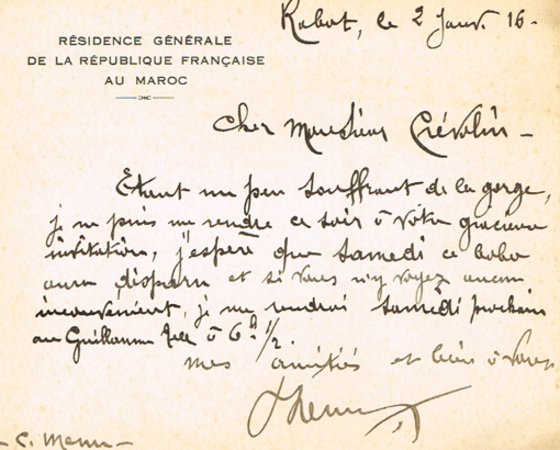 Rabat, le 2 Janv. 16-
RÉSIDENCE GÉNÉRALE
DE LA RÉPUBLIQUE FRANÇAISE
AU MAROC
Cher Monsieur Crévolin -
Etant un peu souffrant de la gorge,
je ne puis me rendre ce soir à votre gracieuse
invitation, j'espère que samedi ce bobo
aura disparu et si vous n'y voyez aucun
inconvénient, je me rendrai samedi prochain
au Guillaume Tell à 6h 1/2.
mes amitiés et bien à vous
- C. Menu -